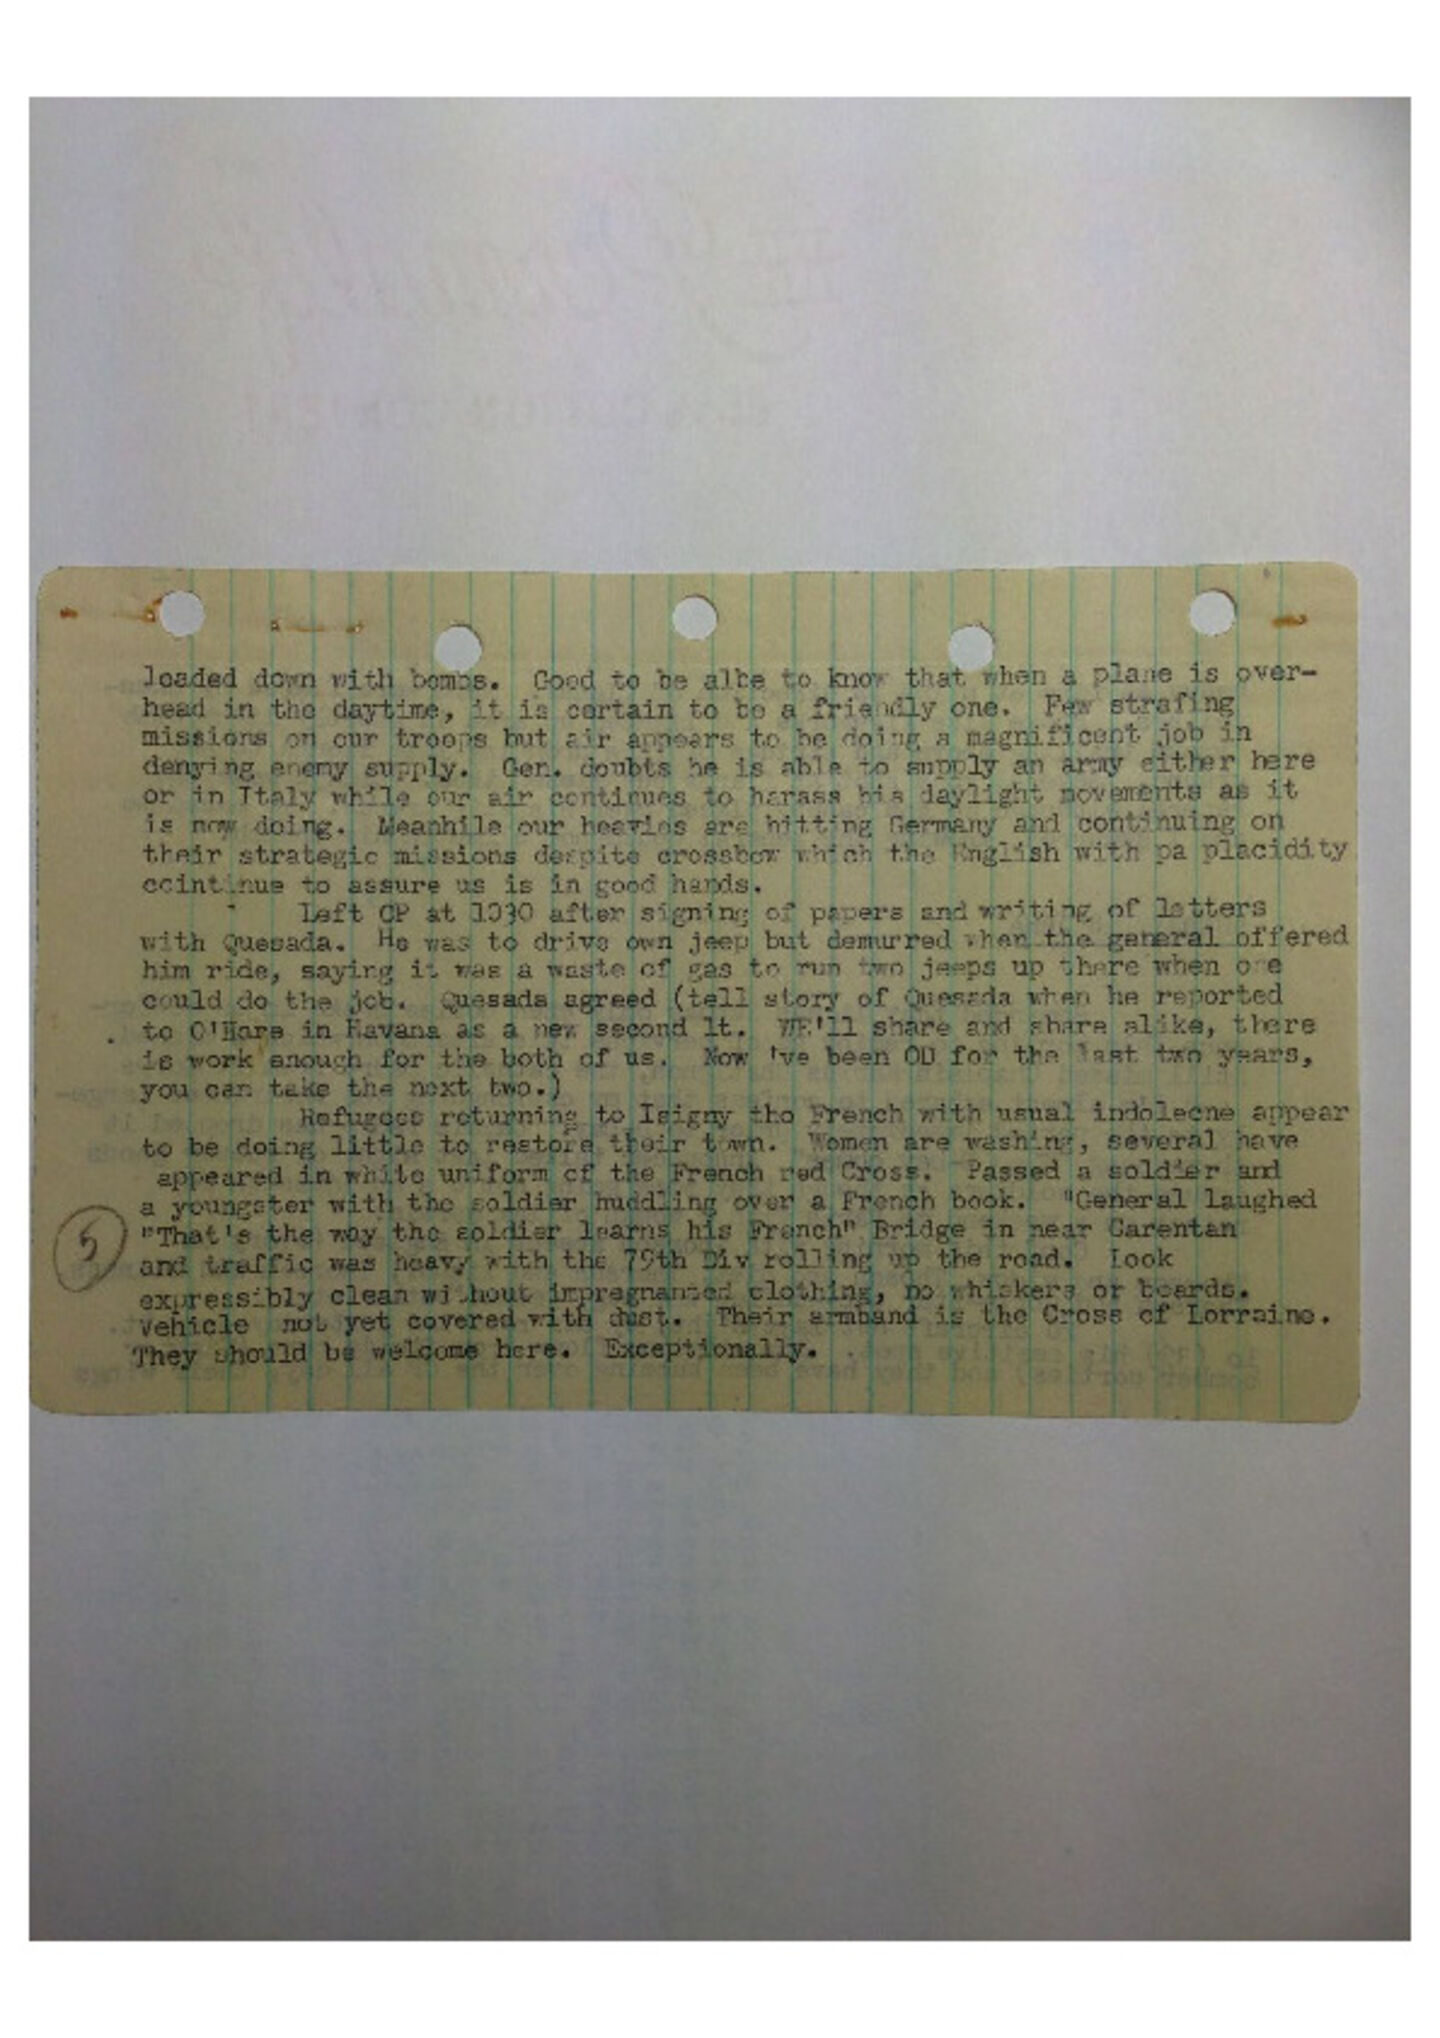 loaded down with bombs. Good to be albe to know that when a plane is over-
head in the daytime, it is certain to be a friendly one. Few strafing
missions on our troops but air appears to be doing a magnificent job in
denying enemy supply. Gen. doubts he is able to supply an army either here
or in Italy while our air continues to harass his daylight movements as it
is now doing. Meanhile our heavies are hitting Germany and continuing on
their strategic missions despite crossbow which the English with pa placidity
ccintinue to assure us is in good hands.
Left CP at 1030 after signing of papers and writing of letters
with Quesada. He was to drive own jeep but demurred when the general offered
him ride, saying it was a waste of gas to run two jeeps up there when one
could do the job. Quesada agreed (tell story of Quesada when he reported
to O'Hare in Havana as a new second lt. WE'll share and share alike, there
is work enough for the both of us. Now 've been OD for the last two years,
you can take the next two.)
Refugees returning to Isigny tho French with usual indolecne appear
to be doing little to restore their town. Women are washing, several have
appeared in white uniform of the French red Cross. Passed a soldier and
a youngster with the soldier huddling over a French book. "General laughed
"That's the way the soldier learns his French" Bridge in near Carentan
and traffic was heavy with the 79th Div rolling up the road. Look
expressibly clean without impregnanted clothing, no whiskers or beards.
vehicle not yet covered with dust. Their armband is the Cross of Lorraine.
They should be welcome here. Exceptionally.
5